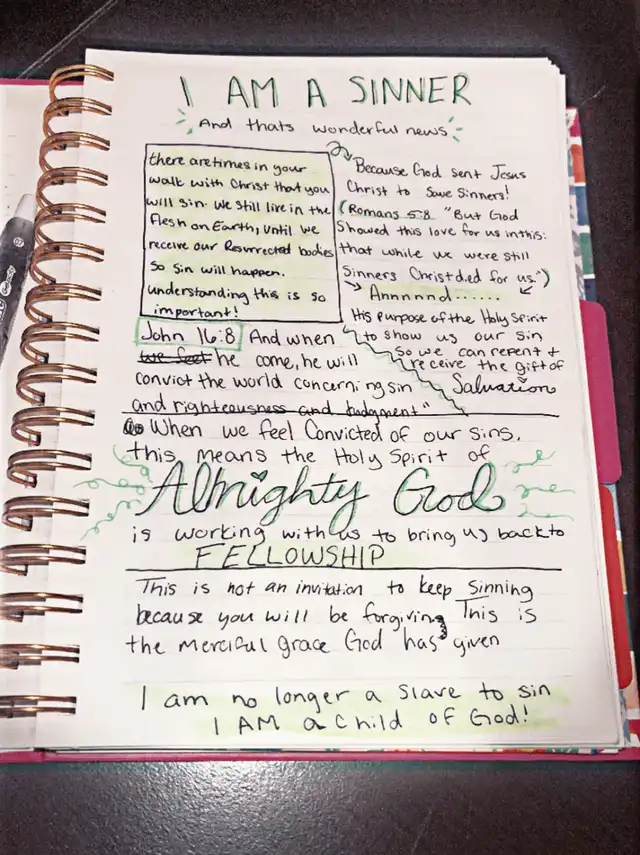 I AM A SINNER
And thats wonderful news
there are times in your
walk with Christ that you
will sin. We still live in the
flesh on Earth, until we
receive our Resurrected bodies
so sin will happen.
understanding this is so
important!
Because God sent Jesus
Christ to Save Sinners!
(Romans 5:8 "But God
Showed this love for us in this:
that while we were still
Sinners Christ died for us.")
Annnnnd......
His purpose of the Holy Spirit
to show us our sin
so we can repent +
receive the gift of
Salvation
John 16:8 And when
we feel he come, he will
convict the world concerning sin
and righteousness and Judgment"
When we feel Convicted of our sins,
this means the Holy Spirit of
Almighty God
is working with us to bring us back to
FELLOWSHIP
This is not an invitation to keep Sinning
because you will be forgiving This is
the merciful grace God has given
I am no longer a slave to sin
I AM a child of God!